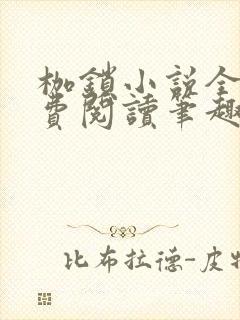 枷鎖小説全
費閱讀筆趣
比布拉德-皮特